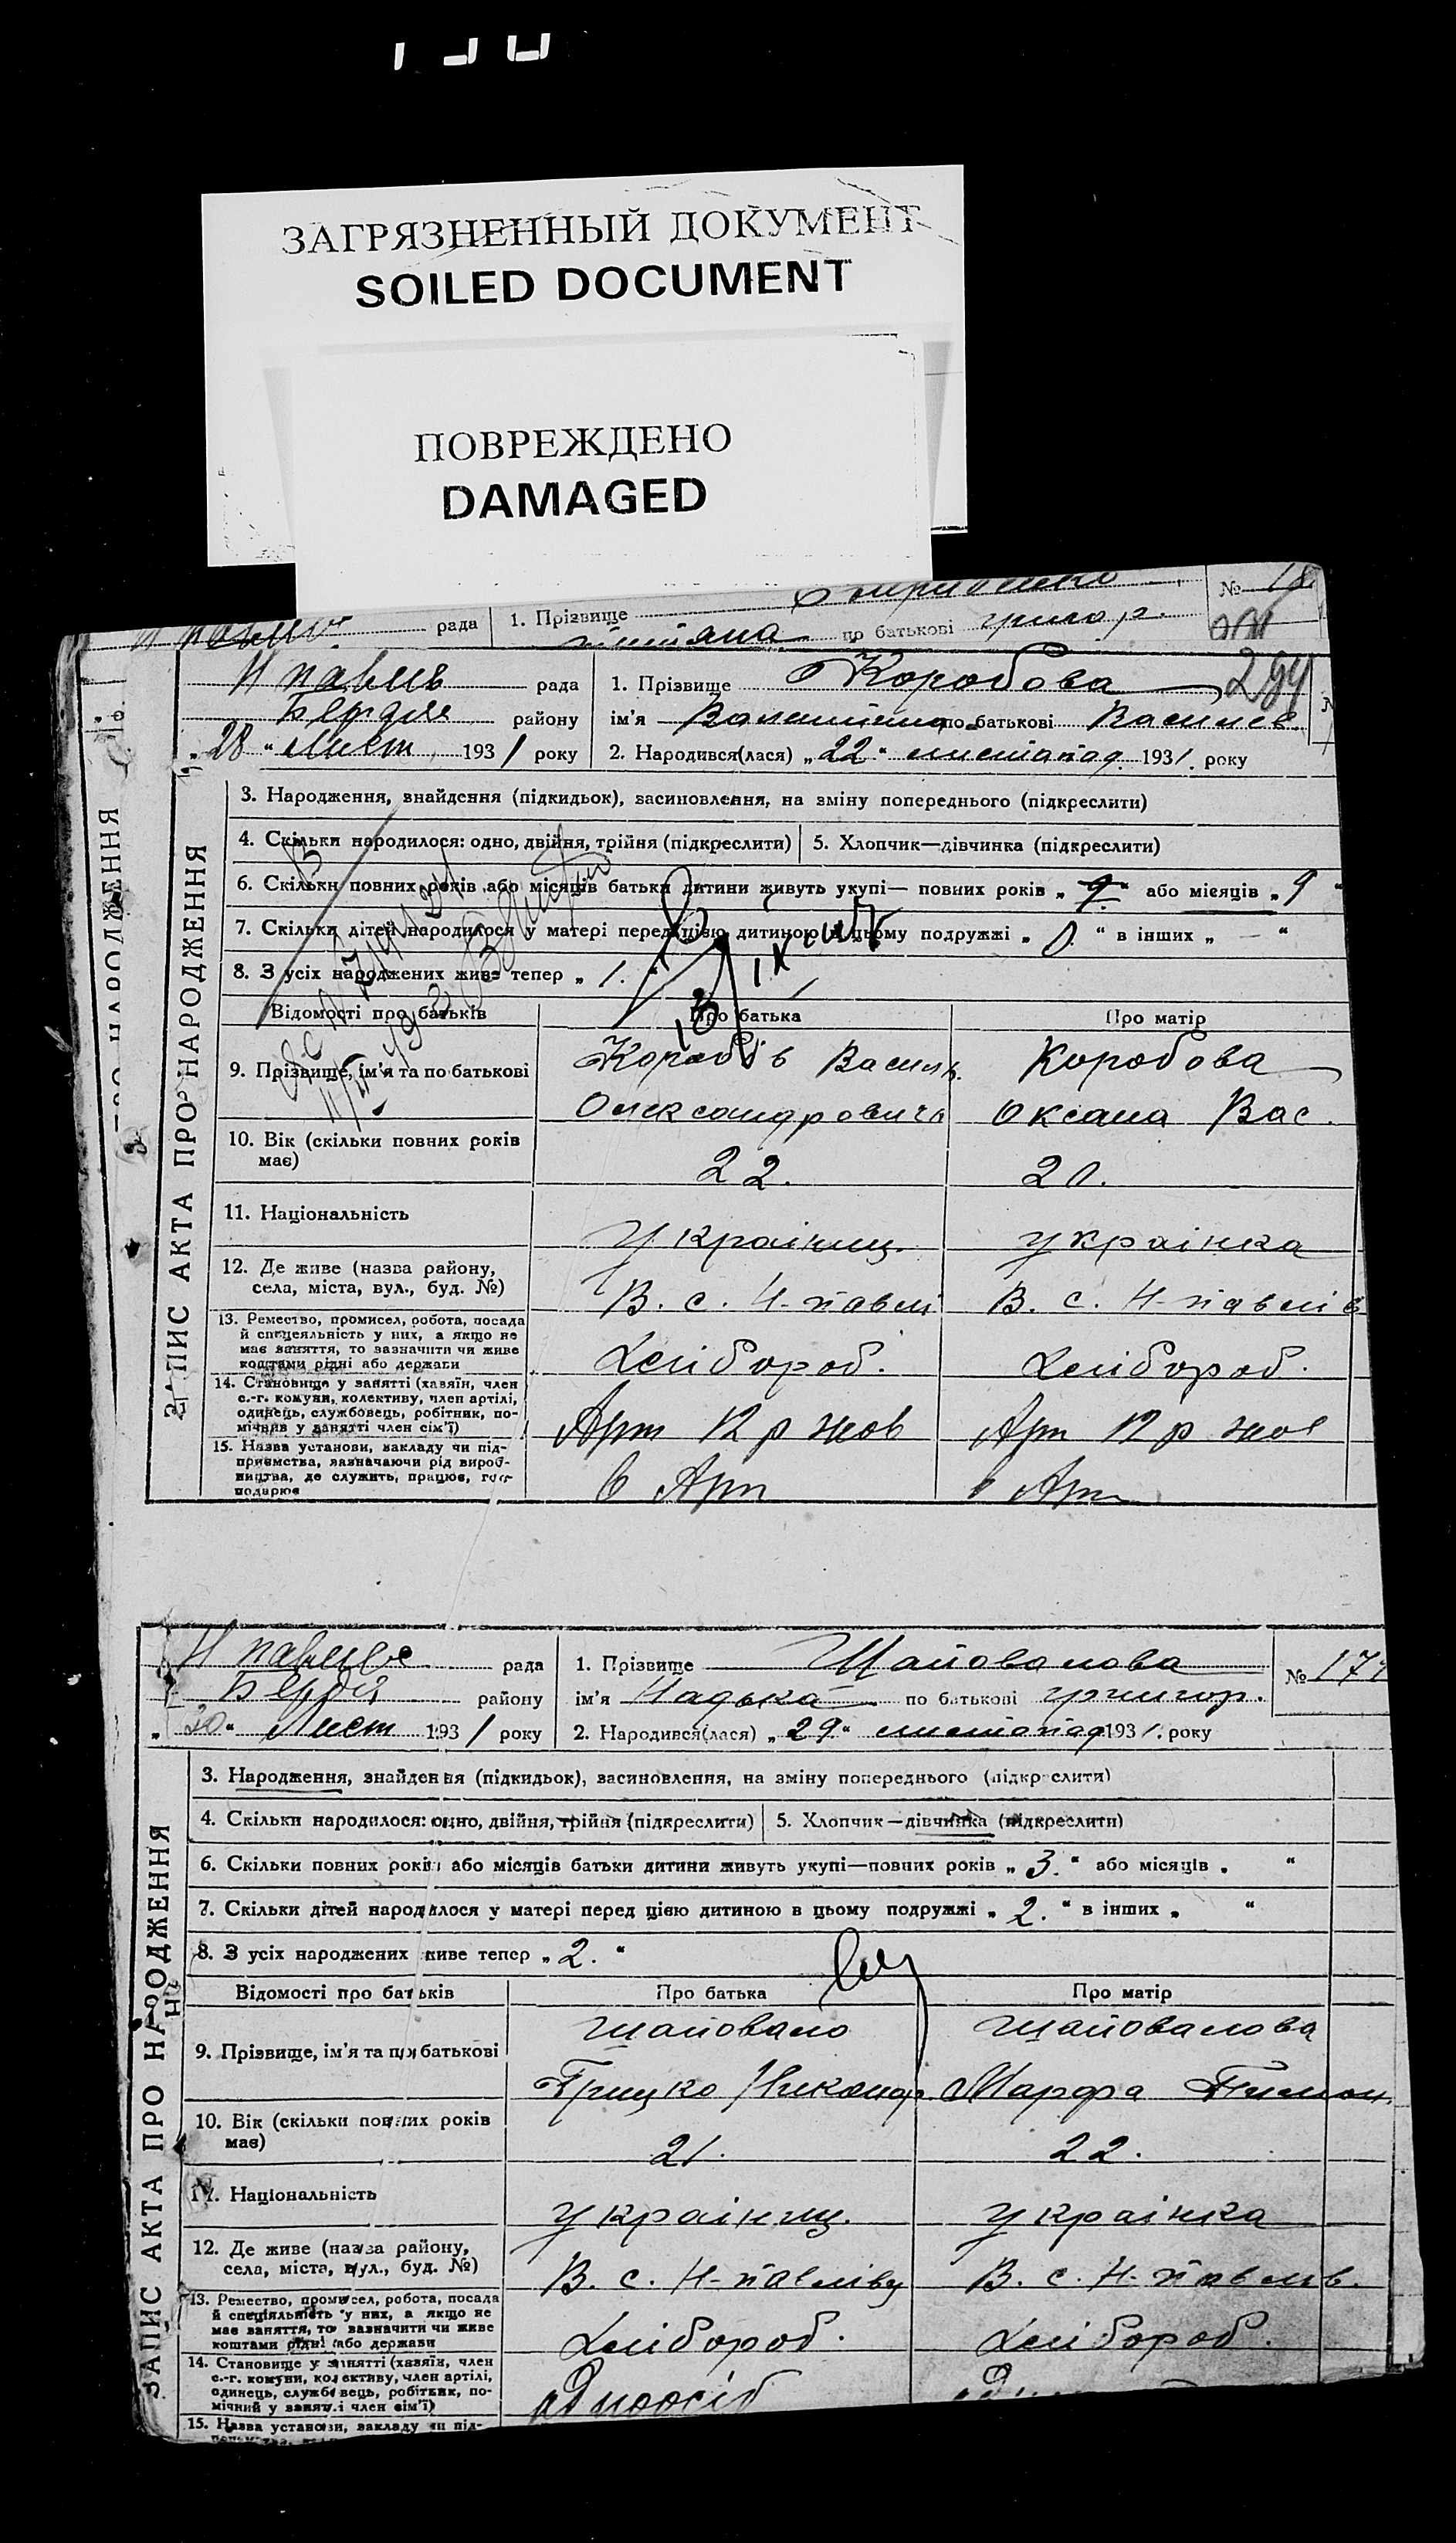 ЗАГРЯЗНЕННЫЙ ДОКУМЕНТ
SOILED DOCUMENT
ПОВРЕЖДЕНО
DAMAGED
рада 1. Прізвище № 18
по батькові григор.
ЗАПИС АКТА ПРО НАРОДЖЕННЯ
Н павлів рада 1. Прізвище Коробова 294
району ім'я Валентина по батькові Василев.
„28“ Лист 1931 року 2. Народився(лася) „22“ листопад. 1931. року
3. Народження, знайдення (підкидьок), засиновлення, на зміну попереднього (підкреслити)
4. Скільки народилося: одно, двійня, трійня (підкреслити) 5. Хлопчик—дівчинка (підкреслити)
6. Скільки повних років або місяців батьки дитини живуть укупі— повних років „9“ або місяців „9“
7. Скільки дітей народилося у матері перед цією дитиною в цьому подружжі „0.“ в інших „—“
8. З усіх народжених живе тепер „1.“
Відомості про батьків Про батька Про матір
9. Прізвище, ім'я та по батькові
Коробів Василь Коробова
Олександрович Оксана Вас.
10. Вік (скільки повних років має) 22. 20.
11. Національність Українц. українка
12. Де живе (назва району, села, міста, вул., буд. №) В. с. Н-павлі В. с. Н-павлів
13. Ремество, промисел, робота, посада й спеціяльність у них, а якщо не має заняття, то зазначити чи живе коштами рідні або держави Хлібороб. Хлібороб.
14. Становище у занятті (хазяїн, член с.-г. комуни, колективу, член артілі, одинець, службовець, робітник, помічник у занятті член сім'ї) Арт 12 р жов Арт 12 р жов
15. Назва установи, закладу чи підприємства, зазначаючи рід виробництва, де служить, працює, господарює в Арт в Арт
ЗАПИС АКТА ПРО НАРОДЖЕННЯ
Н павлів рада 1. Прізвище Шаповалова № 174
району ім'я Надька по батькові григор.
„30“ Лист 1931 року 2. Народився(лася) „29“ листопад 1931. року
3. Народження, знайдення (підкидьок), засиновлення, на зміну попереднього (підкреслити)
4. Скільки народилося: одно, двійня, трійня (підкреслити) 5. Хлопчик—дівчинка (підкреслити)
6. Скільки повних років або місяців батьки дитини живуть укупі—повних років „3.“ або місяців „ “
7. Скільки дітей народилося у матері перед цією дитиною в цьому подружжі „2.“ в інших „ “
8. З усіх народжених живе тепер „2.“
Відомості про батьків Про батька Про матір
9. Прізвище, ім'я та по батькові
Шаповало Шаповалова
Грицко Никанор. Марфа Тимон.
10. Вік (скільки повних років має) 21. 22.
11. Національність українц. українка
12. Де живе (назва району, села, міста, вул., буд. №) В. с. Н-павлівц В. с. Н-павлів.
13. Ремество, промисел, робота, посада й спеціяльність у них, а якщо не має заняття, то зазначити чи живе коштами рідні або держави Хлібороб. Хлібороб.
14. Становище у занятті (хазяїн, член с.-г. комуни, колективу, член артілі, одинець, службовець, робітник, помічний у занятті член сім'ї) Одноосіб
15. Назва установи, закладу чи під-